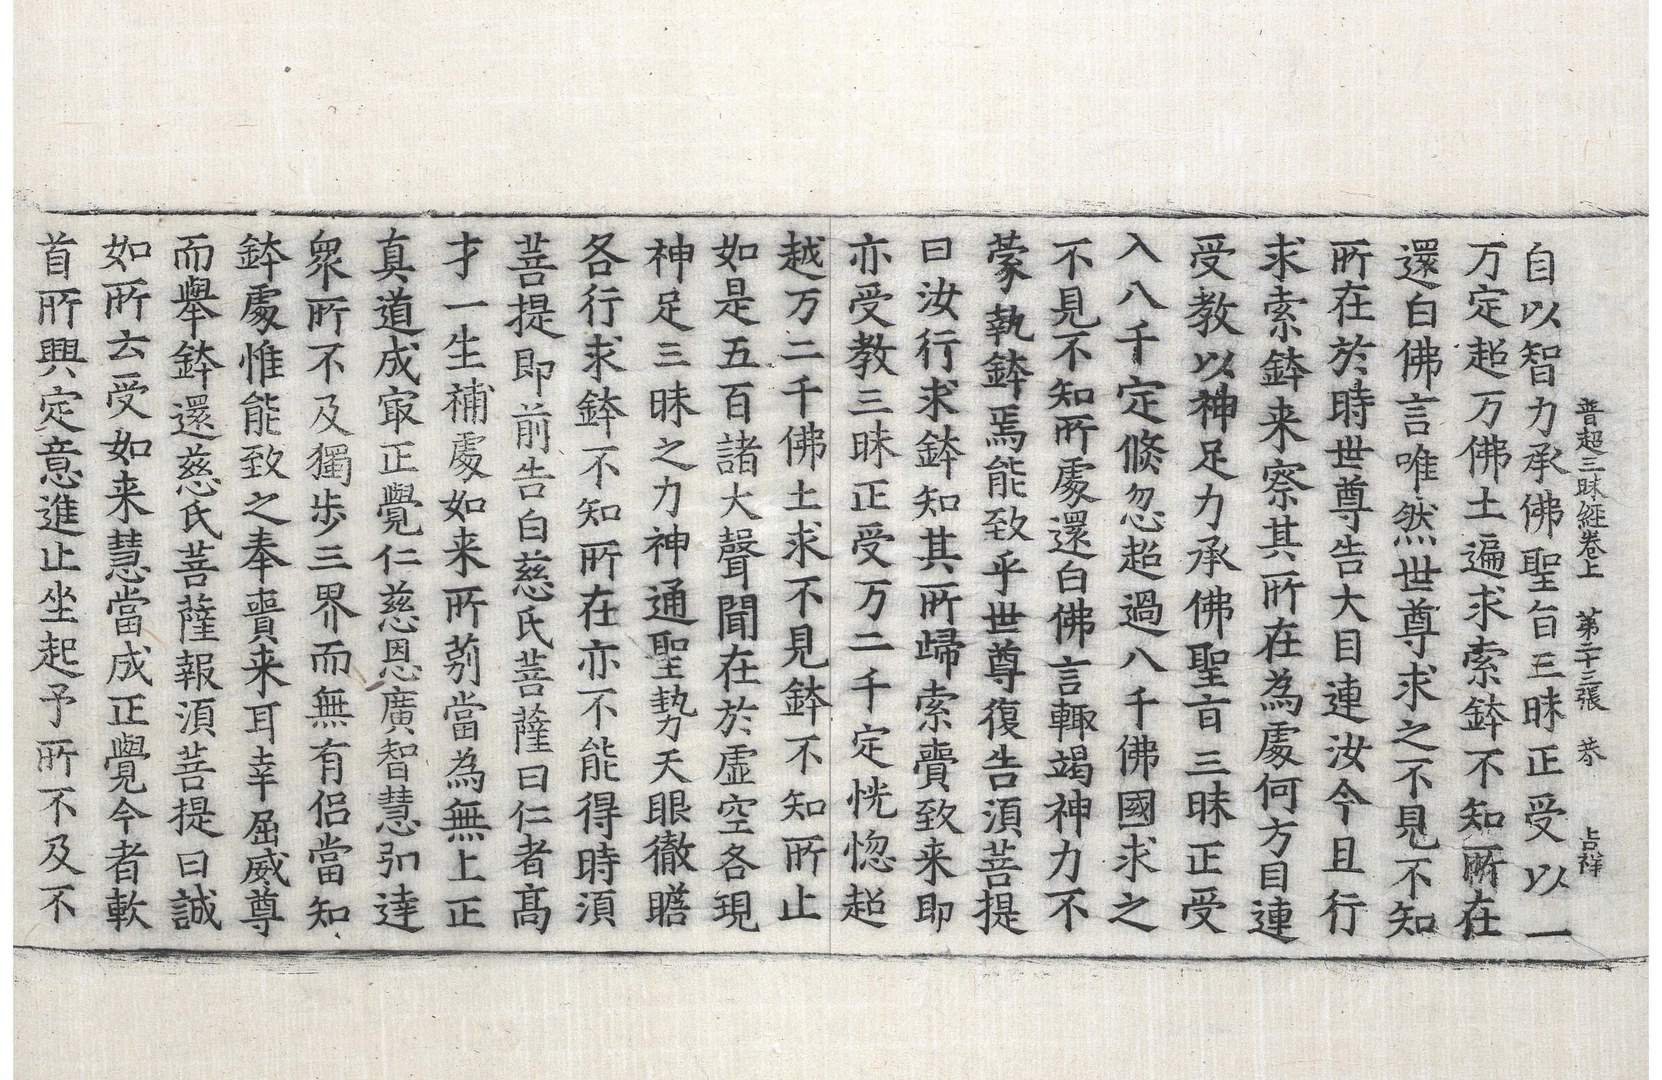 普超三昧經卷上 第二十三張 恭 占禅
自以智力承佛聖旨三昧正受以一
万定超万佛土遍求索鉢不知所在
還白佛言唯然世尊求之不見不知
所在於時世尊告大目連汝今且行
求索鉢来察其所在為處何方目連
受教以神足力承佛聖旨三昧正受
入八千定倏忽超過八千佛國求之
不見不知所處還白佛言輙竭神力不
蒙執鉢焉能致乎世尊復告湏菩提
曰汝行求鉢知其所歸索賷致来即
亦受教三昧正受万二千定恍惚超
越万二千佛土求不見鉢不知所止
如是五百諸大聲聞在於虛空各現
神足三昧之力神通聖㔟天眼徹瞻
各行求鉢不知所在亦不能得時湏
菩提即前告白慈氏菩薩曰仁者髙
才一生補處如来所莂當為無上正
真道成㝡正覺仁慈恩廣智慧弘達
衆所不及獨歩三界而無有侣當知
鉢處惟能致之奉賷来耳幸屈威尊
而舉鉢還慈氏菩薩報湏菩提曰誠
如所云受如来慧當成正覺今者軟
首所興定意進止坐起予所不及不